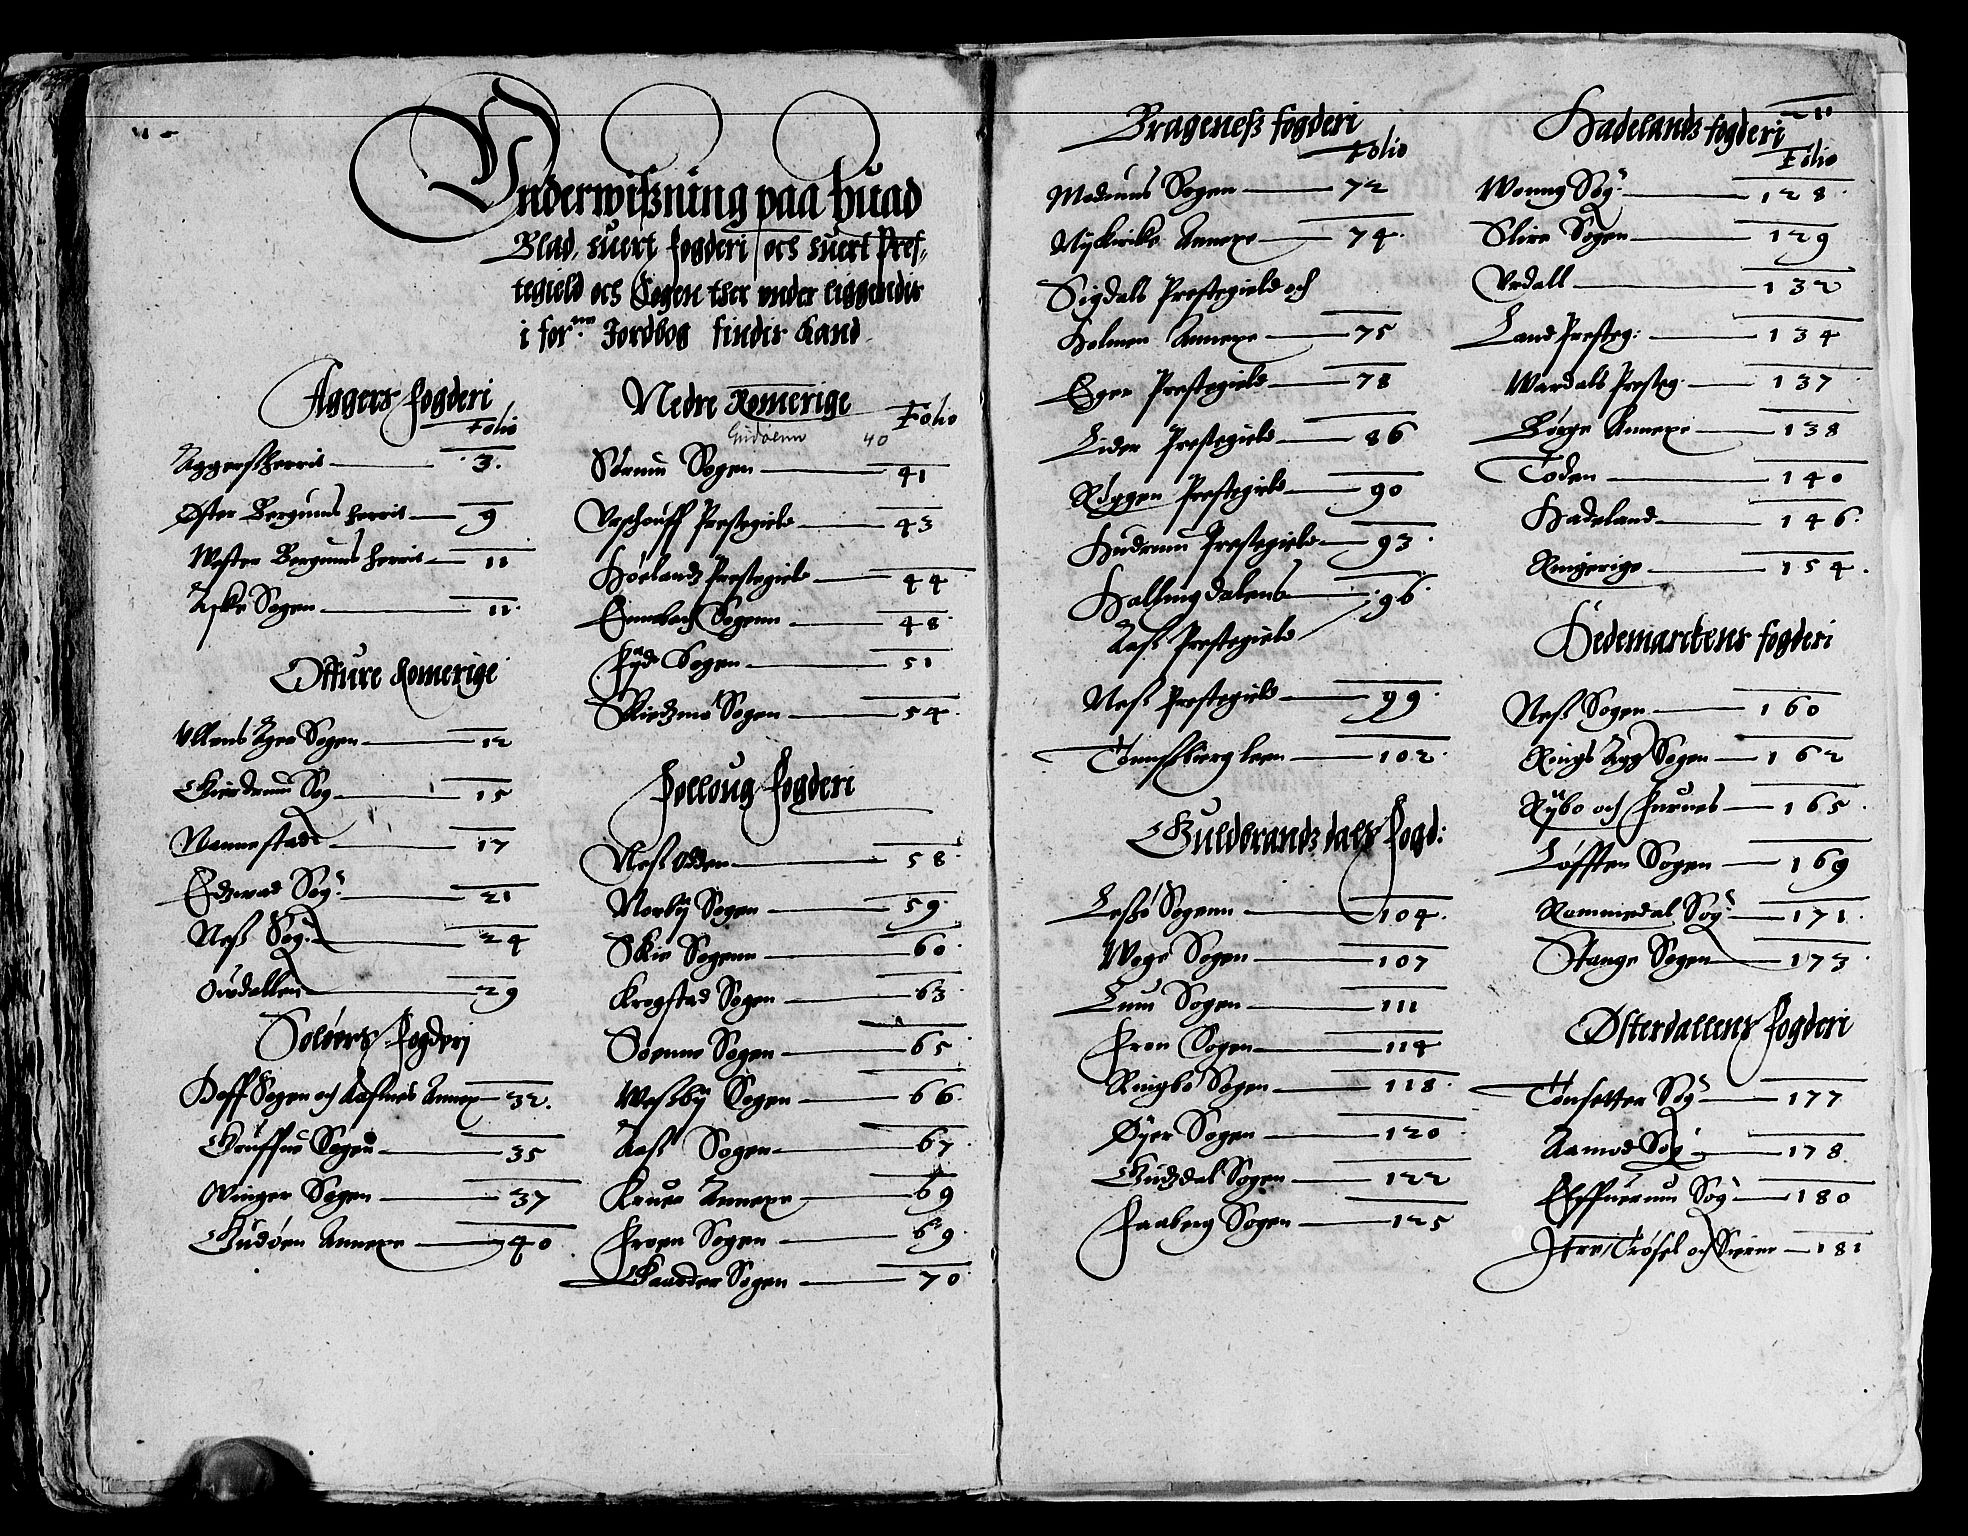 Underwißning paa huad
Blad, huert fogderi och huert Pres-
tegield och Sogen ther under liggendis
i for.ne Jordbog findis kand
Aggers fogderi
Folio
Aggers herrit 3.
Øster Bergums herrit 9
Wester Bergums herrit 11
Aske Sogen 11.
Offure Romerige
Ullens Ager Sogen 12
Gierdrum Sog 15
Nannestad 17
Edzwad Sog: 21
Neß Sog: 24
Ourdallen 29
Soløers fogderj
Hoff Sogen och Aasnes Annex 32.
Grüffue Sogen 35
Winger Sogen 37
Gudøen Annexe 40
Nedre Romerige
Folio
Gudøenn 40
Sørum Sogen 41
Urschouff Prestegield 43
Hølandz Prestegield 44
Ennebach Sogenn 48
Fyde Sogen 51
Skiedzmo Sogen 54
Folloug fogderi
Neß Odden 58
Norby Sogen 59.
Skie Sogenn 60
Krogstad Sogen 63
Soenne Sogen 65
Weßby Sogen 66
Aass Sogen 67
Kruer Annexe 69
Froen Sogen 69.
Gaarder Sogen 70
Brageneß fogderi
Folio
Modums Sogen 72
Nyckircke Annexe 74
Sigdals Prestegield och
Holmen Annexe 75
Eger Prestegield 78
Lider Prestegield 86
Røggen Prestegield 90
Hudrum Prestegield 93
Hallingdalens 96
Aass Prestegield
Neß Prestegield 99
Tønsberg leen 102
Guldbrandz dals fogd:
Leßø Sogenn 104.
Wage Sogen 107
Lum Sogen 111
Fron Sogen 114
Ringbo Sogen 118
Øyer Sogen 120
Gudzdal Sogen 122
Faaberg Sogen 125
Hadelands fogderi
Folio
Wonng Sog: 128
Slire Sogen 129
Urdall 132
Land Presteg: 134
Wardals Presteg. 137
Borge Annexe 138
Toden 140
Hadeland 146.
Ringerige 154.
Hedemarckens fogderi
Neß Sogen 160
Rings Agg Sogen 162
Rybo och Furnes 165
Løfften Sogen 169
Rommedal Sog 171.
Stange Sogen 173.
Østerdallens fogderi
Tønsetter Sog 177
Aamod Sog 178
Elffuerum Sog 180
Itre Trøsel och Sierne 181